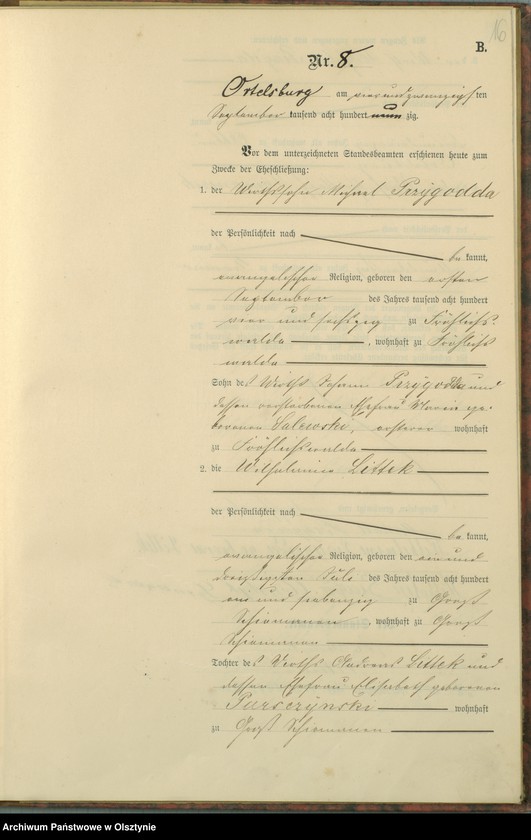 16
B.
Nr. 8.
Ortelsburg am vierundzwanzigsten
September tausend acht hundert neun zig.
Vor dem unterzeichneten Standesbeamten erschienen heute zum
Zwecke der Eheschließung:
1. der Wirthssohn Michael Przygodda
der Persönlichkeit nach
be kannt,
evangelischer Religion, geboren den ersten
September des Jahres tausend acht hundert
vier und sechszig zu Fröhlichs-
walde, wohnhaft zu Fröhlichs
walde
Sohn des Wirths Johann Przygodda und
dessen verstorbenen Ehefrau Marie ge-
borenen Salewski, ersterer wohnhaft
zu Fröhlichswalde
2. die Wilhelmine Littek
der Persönlichkeit nach
be kannt,
evangelischer Religion, geboren den ein und
dreißigsten Juli des Jahres tausend acht hundert
ein und siebenzig zu Groß
Schiemanen, wohnhaft zu Groß
Schiemanen
Tochter des Wirths Andreas Littek und
dessen Ehefrau Elisabeth geborenen
wohnhaft
zu Groß Schiemanen
Archiwum Państwowe w Olsztynie